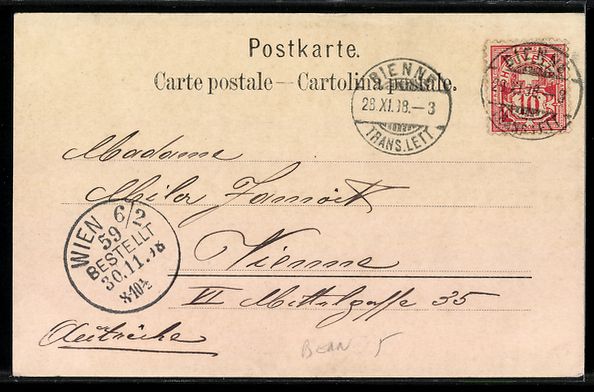 Postkarte.
Carte postale — Cartolina postale.
BIENNE
28.XI.98.–3
TRANS.LETT
BIENNE
10
Madame
Vienne
VI Mittelgasse 35
WIEN 6/2
59
BESTELLT
30.11.98
BERN 5